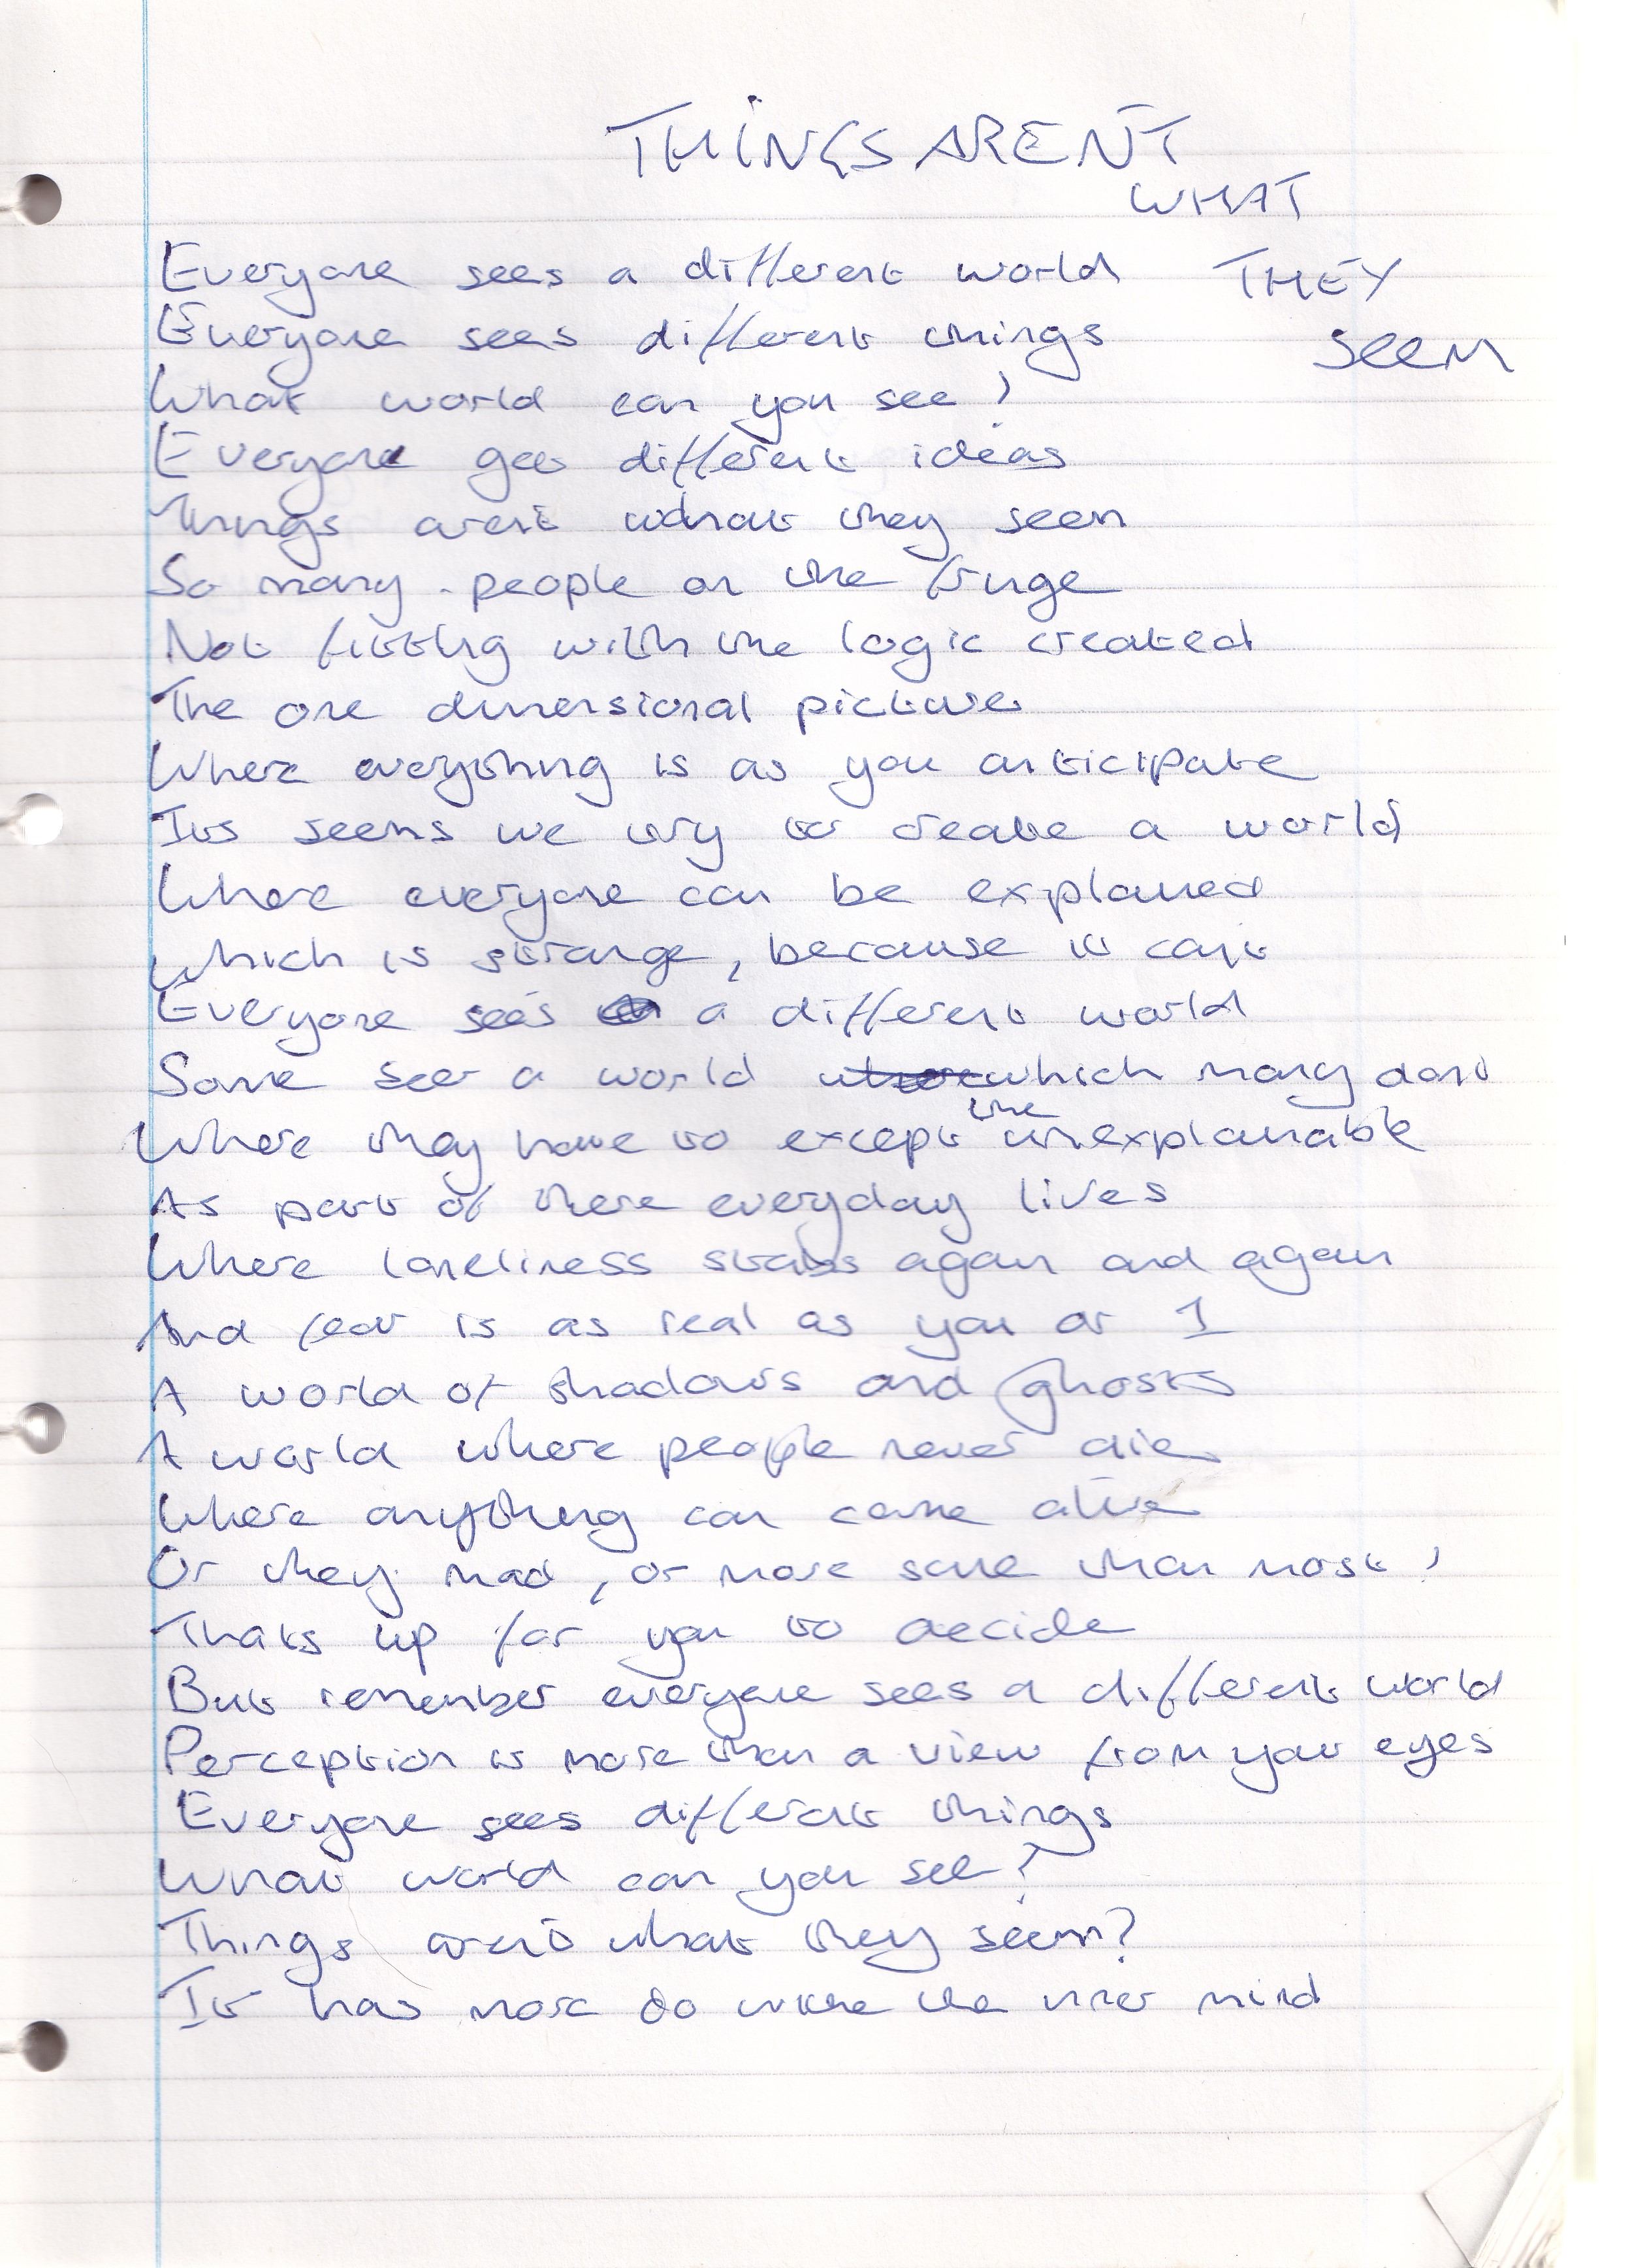 THINGS ARENT
WHAT
THEY
SEEM
Everyone sees a different world
Everyone sees different things
What world can you see?
Everyone got different ideas
Things arent what they seem
So many people on the fringe
Not fitting with the logic created
The one dimensional picture
Where everything is as you anticipate
Its seems we try to create a world
Where everyone can be explained
Which is strange, because it cant
Everyone sees a different world
Some see a world which many dont
Where they have to except the unexplainable
As part of there everyday lives
Where loneliness stabs again and again
And fear is as real as you or I
A world of shadows and ghosts
A world where people never die
Where anything can come alive
Or they mad, or more sane than most?
Thats up for you to decide
But remember everyone sees a different world
Perception is more than a view from your eyes
Everyone sees different things
What world can you see?
Things arent what they seem?
It has more do the inner mind